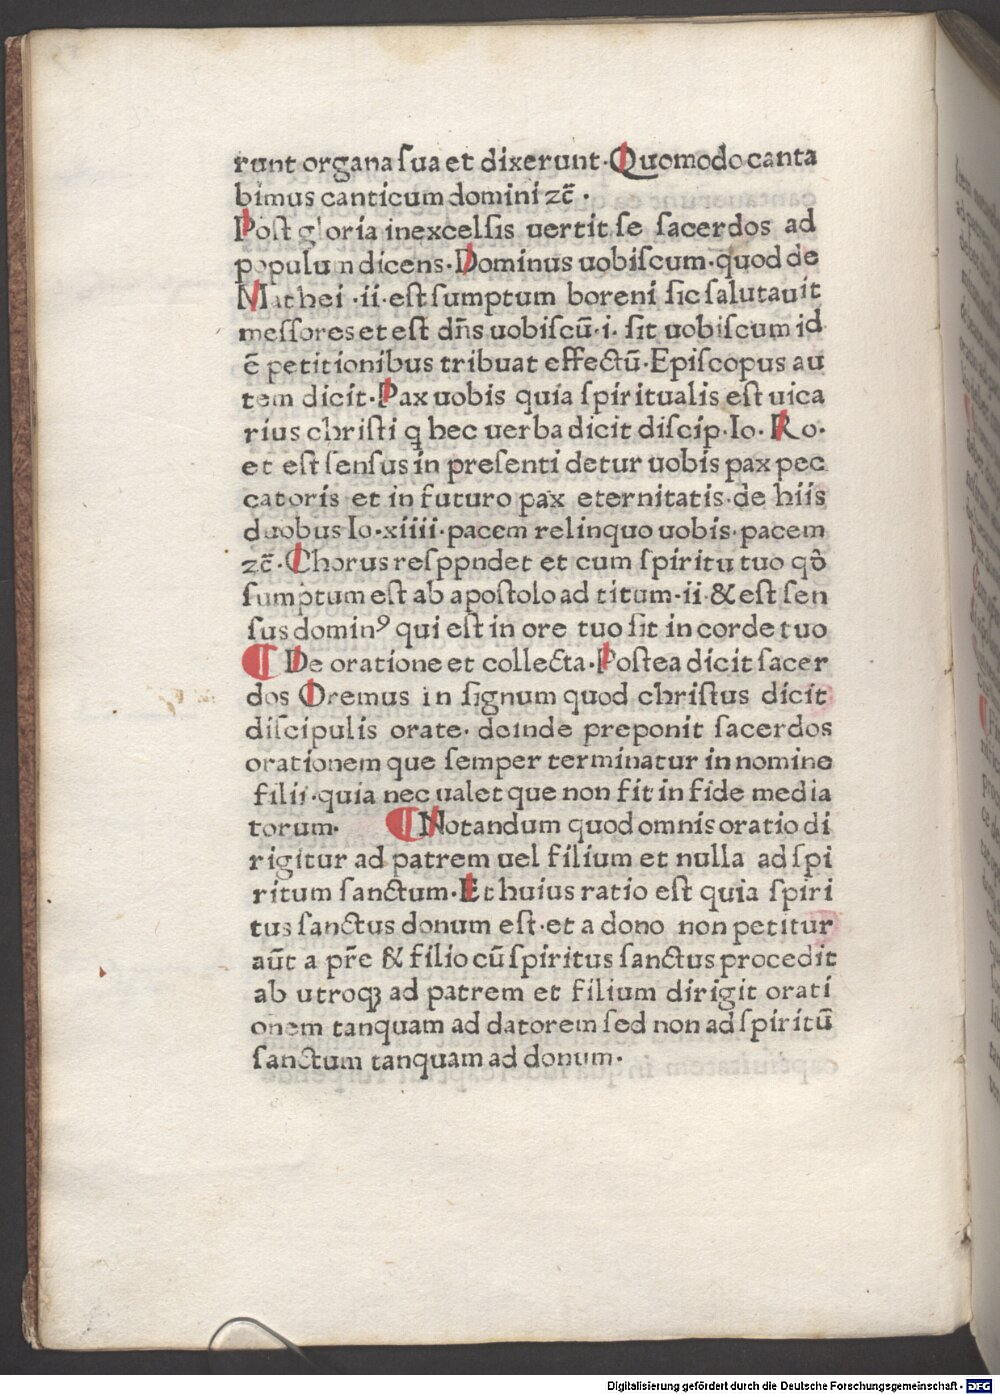 runt organa ſua et dixerunt·Quomodo canta
bimus canticum domini ⁊c̄·
Poſt gloria inexcelſis uertit ſe ſacerdos ad
populum dicens·Dominus uobiſcum·quod de
Mathei ·ii·eſt ſumptum boreni ſic ſalutauit
meſſores et eſt dn̄s uobiſcū·i· ſit uobiſcum id
ē petitionibus tribuat effectū·Epiſcopus au
tem dicit·Pax uobis quia ſpiritualis eſt uica
rius chriſti q hec uerba dicit diſcip·Io·Ro·
et eſt ſenſus in preſenti detur uobis pax pec
catoris et in futuro pax eternitatis·de hiis
duobus Io·xiiii·pacem relinquo uobis·pacem
⁊c̄·Chorus reſppndet et cum ſpiritu tuo qȏ
ſumptum eſt ab apoſtolo ad titum·ii·& eſt ſen
ſus dominꝰ qui eſt in ore tuo ſit in corde tuo
¶ De oratione et collecta·Poſtea dicit ſacer
dos Oremus in ſignum quod chriſtus dicit
diſcipulis orate· deinde preponit ſacerdos
orationem que ſemper terminatur in nomine
filii·quia nec ualet que non fit in fide media
torum· ¶ Notandum quod omnis oratio di
rigitur ad patrem uel filium et nulla ad ſpi
ritum ſanctum·Et huius ratio eſt quia ſpiri
tus ſanctus donum eſt·et a dono non petitur
aūt a pr̄e & filio cū ſpiritus ſanctus procedit
ab utroqꝫ ad patrem et filium dirigit orati
onem tanquam ad datorem ſed non ad ſpiritū
ſanctum tanquam ad donum·
Digitalisierung gefördert durch die Deutsche Forschungsgemeinschaft - DFG